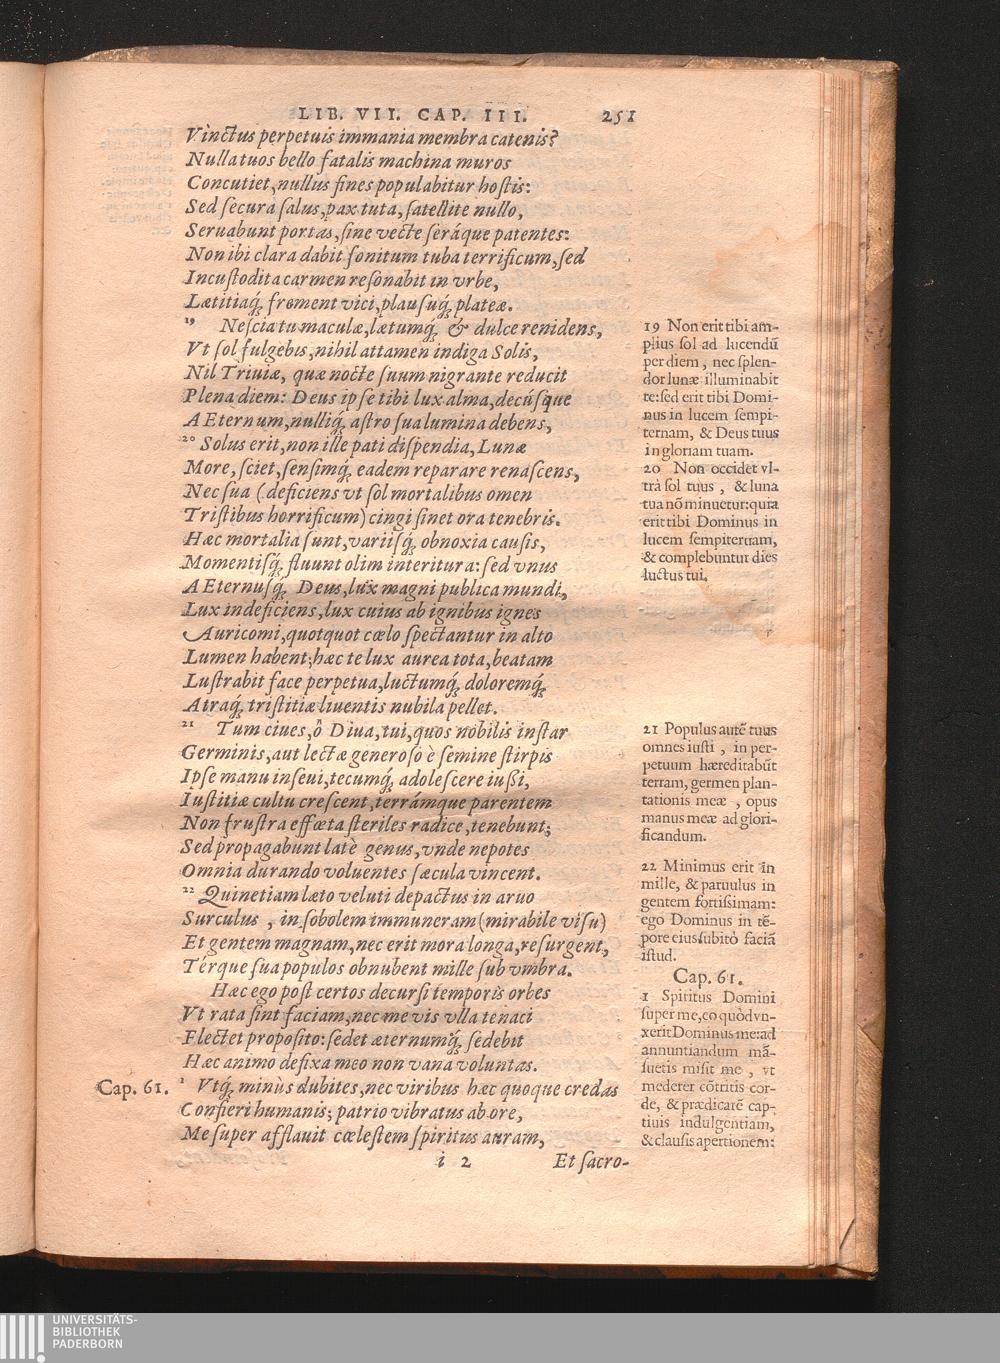 LIB. VII. CAP. III. 251
Vinctus perpetuis immania membra catenis?
Nulla tuos bello fatalis machina muros
Concutiet, nullus fines populabitur hostis:
Sed secura salus, pax tuta, satellite nullo,
Seruabunt portas, sine vecte seráque patentes:
Non ibi clara dabit sonitum tuba terrificum, sed
Incustodita carmen resonabit in vrbe,
Lætitiaq́; frement vici, plausuq́; plateæ.
19 Nescia tu maculæ, lætumq́; & dulce renidens,
Vt sol fulgebis, nihil attamen indiga Solis,
Nil Triuiæ, quæ nocte suum nigrante reducit
Plena diem: Deus ipse tibi lux alma, decúsque
AEternum, nulliq́; astro sua lumina debens,
20 Solus erit, non ille pati dispendia, Lunæ
More, sciet, sensimq́; eadem reparare renascens,
Nec sua (deficiens vt sol mortalibus omen
Tristibus horrificum) cingi sinet ora tenebris.
Hæc mortalia sunt, variisq́; obnoxia causis,
Momentisq́; fluunt olim interitura: sed vnus
AEternusq́; Deus, lux magni publica mundi,
Lux indeficiens, lux cuius ab ignibus ignes
Auricomi, quotquot cœlo spectantur in alto
Lumen habent; hæc te lux aurea tota, beatam
Lustrabit face perpetua, luctumq́; doloremq́;
Atraq́; tristitiæ liuentis nubila pellet.
21 Tum ciues, ô Diua, tui, quos nobilis instar
Germinis, aut lectæ generoso è semine stirpis
Ipse manu inseui, tecumq́; adolescere iußi,
Iustitiæ cultu crescent, terrámque parentem
Non frustra effœta steriles radice, tenebunt;
Sed propagabunt latè genus, vnde nepotes
Omnia durando voluentes sæcula vincent.
22 Quinetiam læto veluti depactus in aruo
Surculus, in sobolem immuneram (mirabile visu)
Et gentem magnam, nec erit mora longa, resurgent,
Térque sua populos obnubent mille sub vmbra.
Hæc ego post certos decursi temporis orbes
Vt rata sint faciam, nec me vis vlla tenaci
Flectet proposito: sedet æternumq́; sedebit
Hæc animo defixa meo non vana voluntas.
Cap. 61. 1 Vtq́; minùs dubites, nec viribus hæc quoque credas
Confieri humanis; patrio vibratus ab ore,
Me super afflauit cœlestem spiritus auram,
i 2 Et sacro-
19 Non erit tibi am-
plius sol ad lucendū
per diem, nec splen-
dor lunæ illuminabit
te: sed erit tibi Domi-
nus in lucem sempi-
ternam, & Deus tuus
in gloriam tuam.
20 Non occidet vl-
trà sol tuus, & luna
tua nō minuetur: quia
erit tibi Dominus in
lucem sempiternam,
& complebuntur dies
luctus tui.
21 Populus autē tuus
omnes iusti, in per-
petuum hæreditabūt
terram, germen plan-
tationis meæ, opus
manus meæ ad glori-
ficandum.
22 Minimus erit in
mille, & paruulus in
gentem fortissimam:
ego Dominus in tē-
pore eius subitò faciā
istud.
Cap. 61.
1 Spiritus Domini
super me, eo quòd vn-
xerit Dominus me: ad
annuntiandum mā-
suetis misit me, vt
mederer cōtritis cor-
de, & prædicarē cap-
tiuis indulgentiam,
& clausis apertionem:
UNIVERSITÄTS-
BIBLIOTHEK
PADERBORN